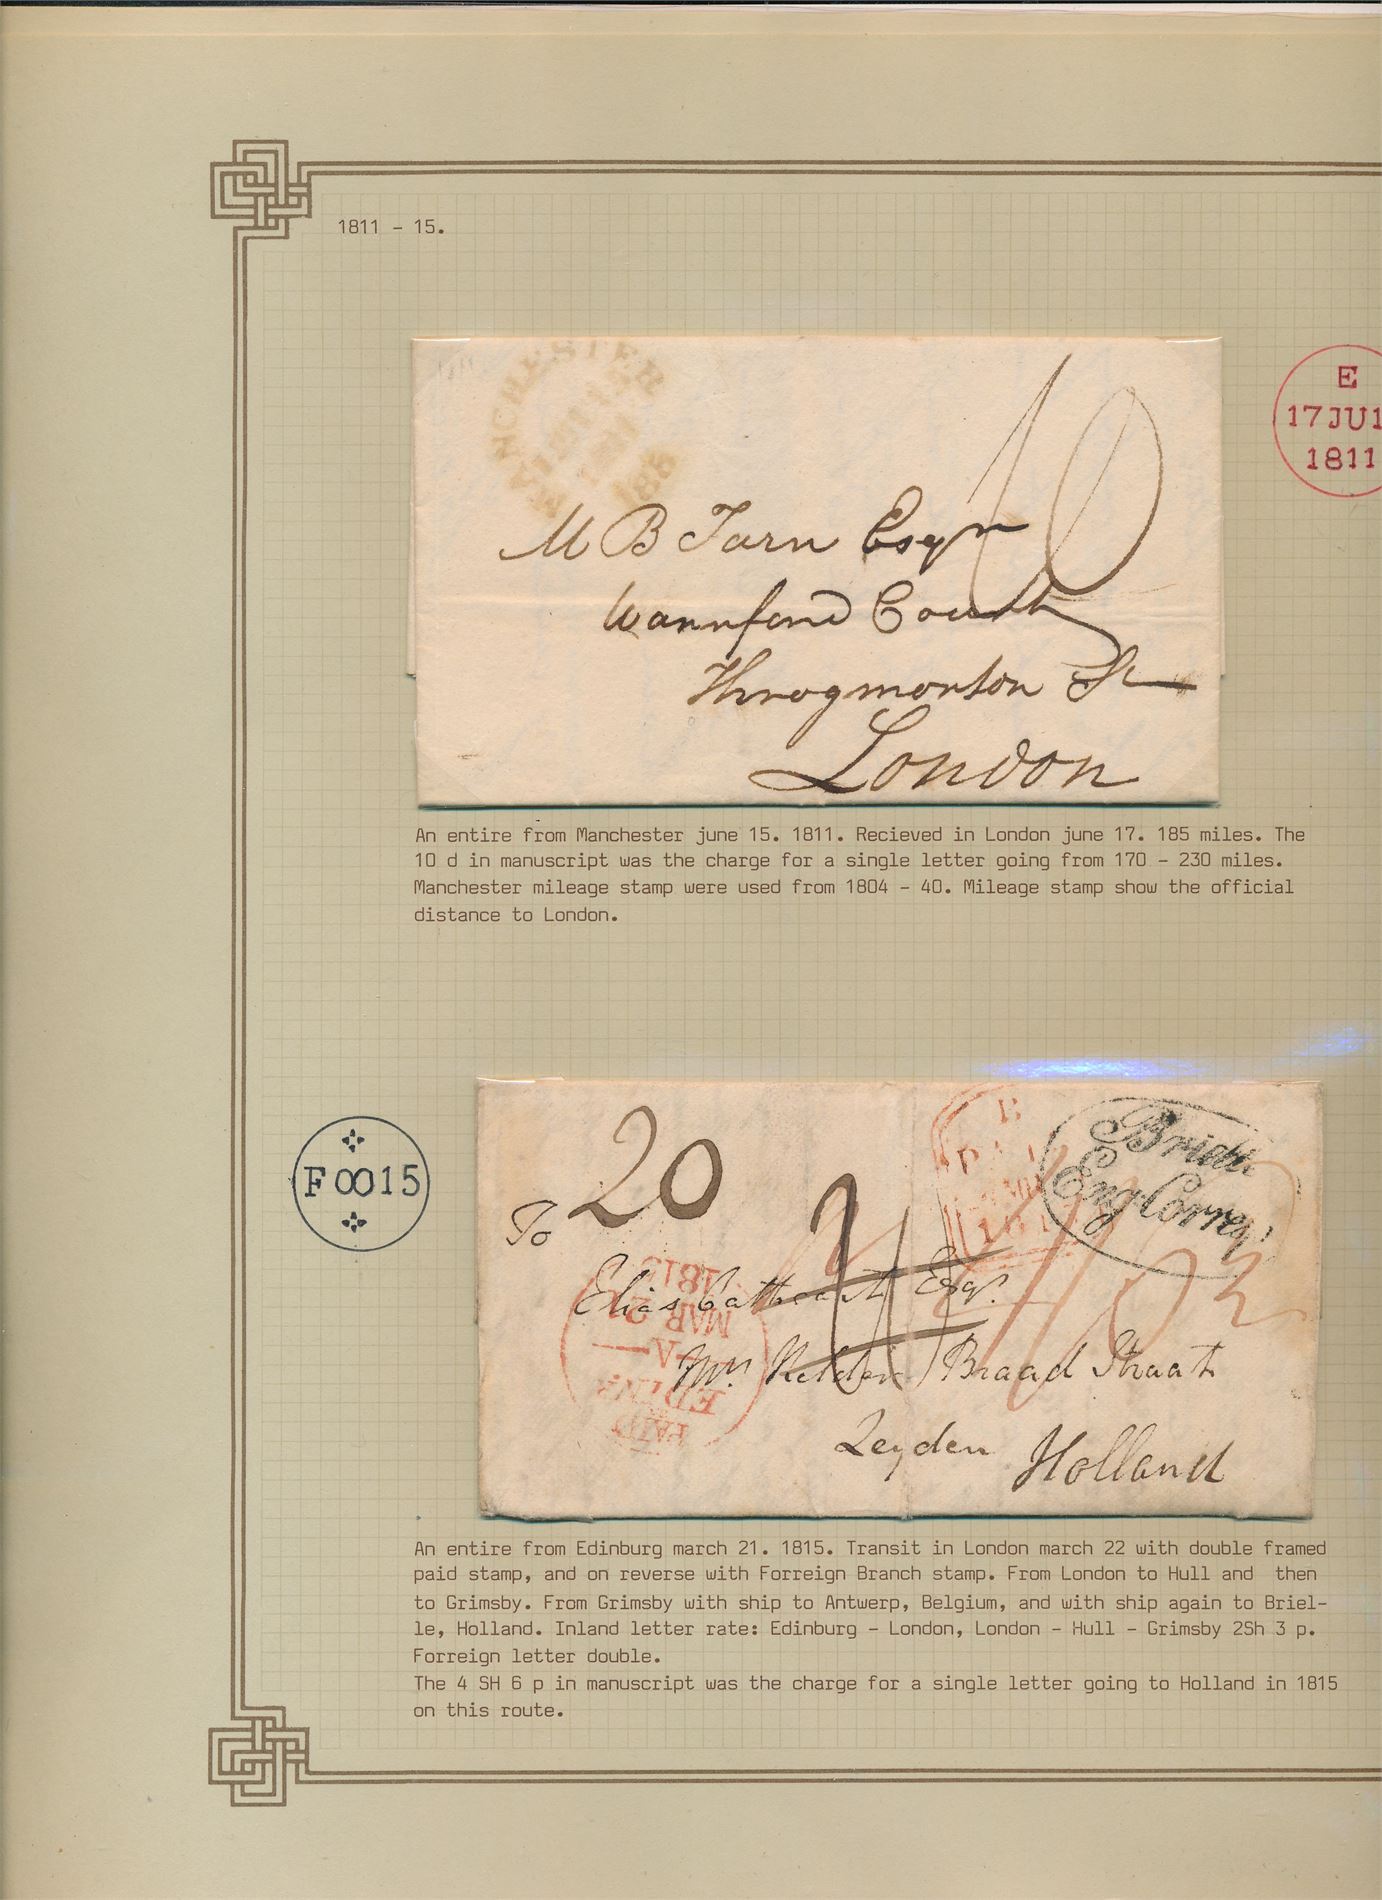 1811 - 15.
MANCHESTER
185
10
E
17 JU 1
1811
M B Tarn Esqr
Warnford Court
Throgmorton St
London
An entire from Manchester june 15. 1811. Recieved in London june 17. 185 miles. The
10 d in manuscript was the charge for a single letter going from 170 - 230 miles.
Manchester mileage stamp were used from 1804 - 40. Mileage stamp show the official
distance to London.
F 0015
20
Eng Corresp!
To
Elias Cathcart Esqr.
Braad Straat
Leyden Holland
1815
MAR 21
A
EDINR
PAID
An entire from Edinburg march 21. 1815. Transit in London march 22 with double framed
paid stamp, and on reverse with Forreign Branch stamp. From London to Hull and then
to Grimsby. From Grimsby with ship to Antwerp, Belgium, and with ship again to Briel-
le, Holland. Inland letter rate: Edinburg - London, London - Hull - Grimsby 2Sh 3 p.
Forreign letter double.
The 4 SH 6 p in manuscript was the charge for a single letter going to Holland in 1815
on this route.